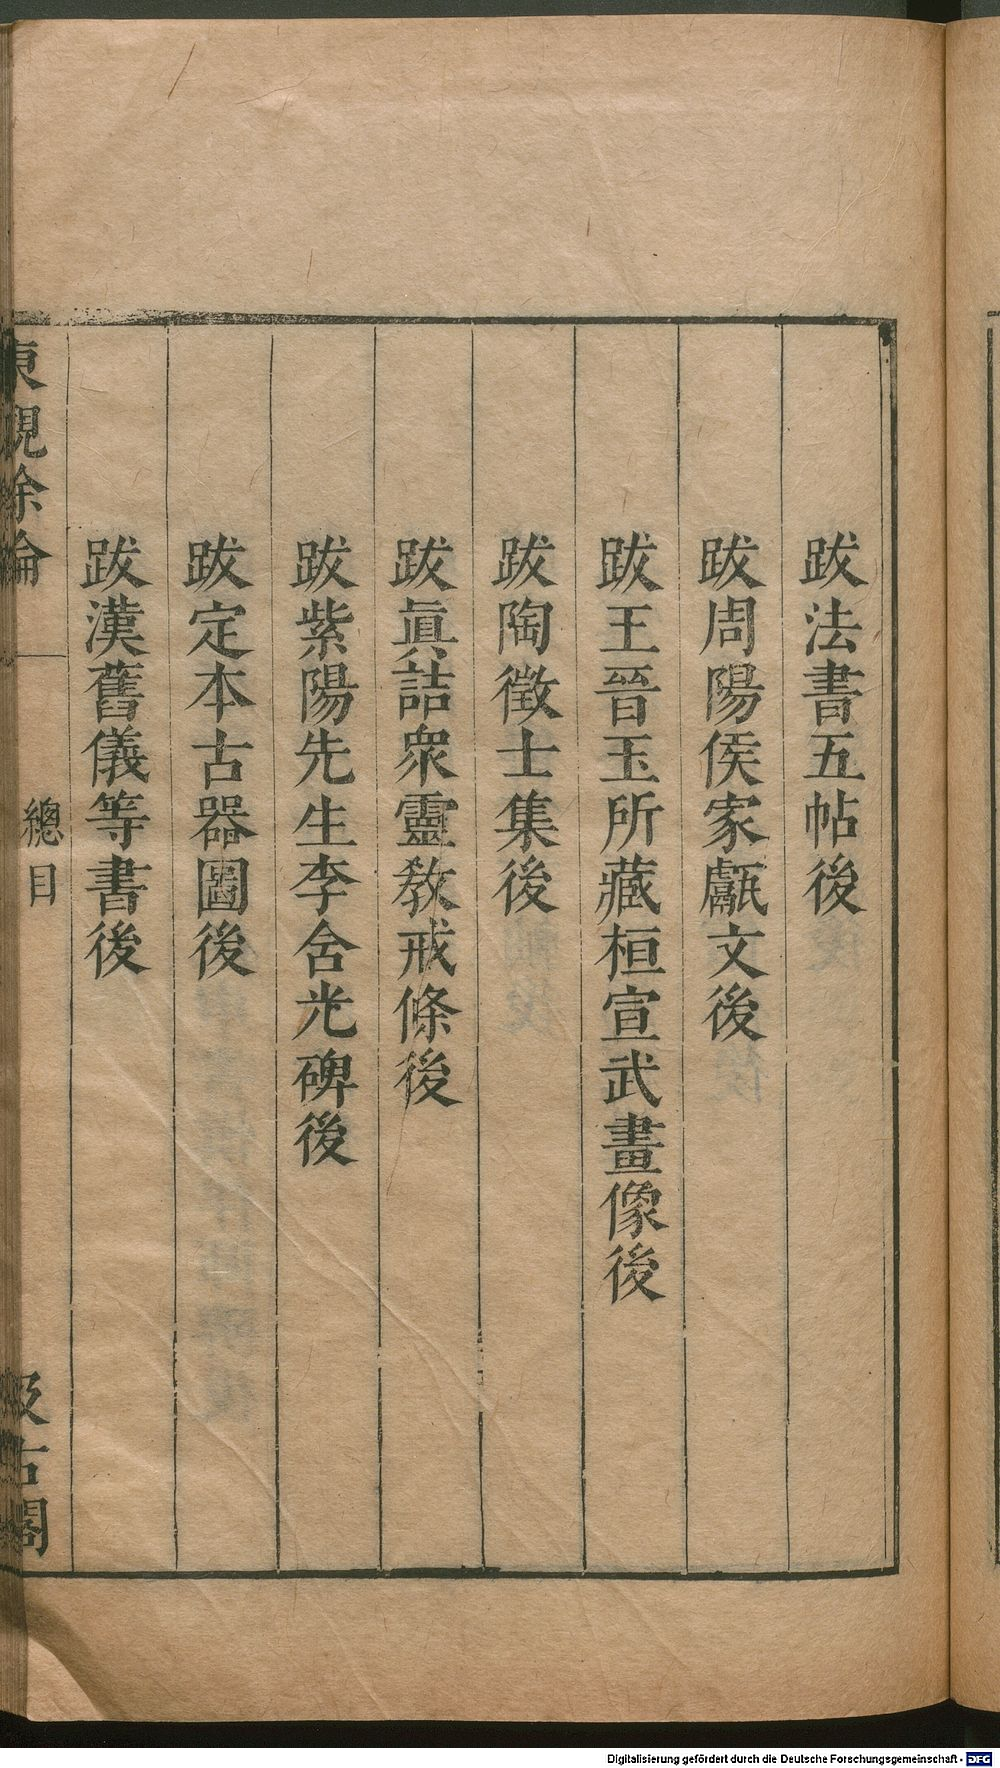 跋法書五帖後
跋周陽侯家甗文後
跋王晉玉所藏桓宣武畫像後
跋陶徵士集後
跋眞誥衆靈敎戒條後
跋紫陽先生李含光碑後
跋定本古器圖後
跋漢舊儀等書後
東觀餘論
總目
汲古閣
Digitalisierung gefördert durch die Deutsche Forschungsgemeinschaft - DFG